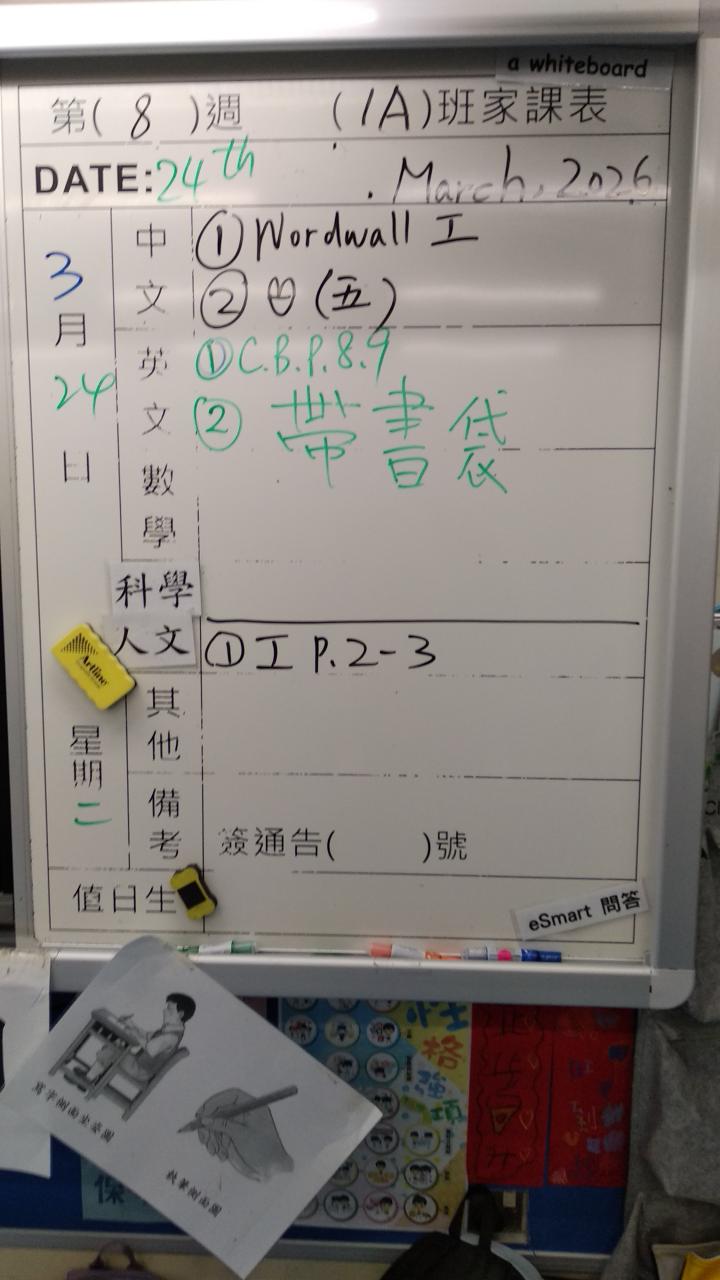 a whiteboard
第( 8 )週 (1A)班家課表
DATE: 24th March, 2026
3月24日
星期二
中文
① Wordwall 工
② (五)
英文
① C.B.P.8.9
② 帶書袋
數學
科學
人文
① 工 P.2-3
Artline
其他
備考
簽通告( )號
值日生
eSmart 問答
寫字側面坐姿圖
執筆側面圖
性格強項